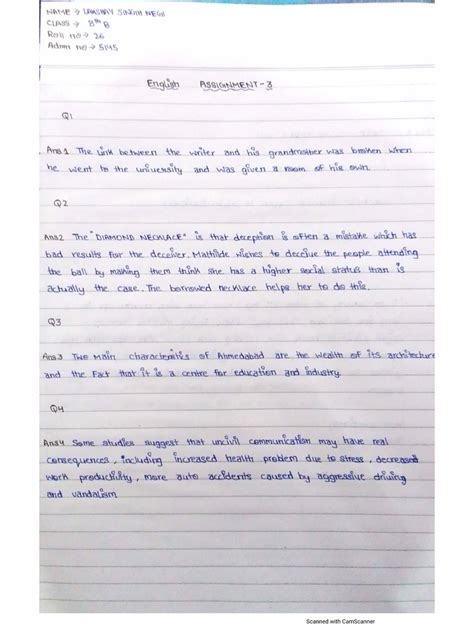 NAME → LAKSHAY SINGH NEGI
CLASS → 8th B
Roll no → 26
Admn no → 5145
English ASSIGNMENT - 3
Q1
Ans1 The link between the writer and his grandmother was broken when
he went to the university and was given a room of his own.
Q2
Ans2 The "DIAMOND NECKLACE" is that deception is often a mistake which has
bad results for the deceiver. Mathilde wishes to deceive the people attending
the ball by making them think she has a higher social status than is
actually the case. The borrowed necklace helps her to do this.
Q3
Ans3 Two main characteristics of Ahmedabad are the wealth of its architecture
and the fact that it is a centre for education and industry.
Q4
Ans4 Some studies suggest that uncivil communication may have real
consequences, including increased health problem due to stress, decreased
work productivity, more auto accidents caused by aggressive driving
and vandalism
Scanned with CamScanner